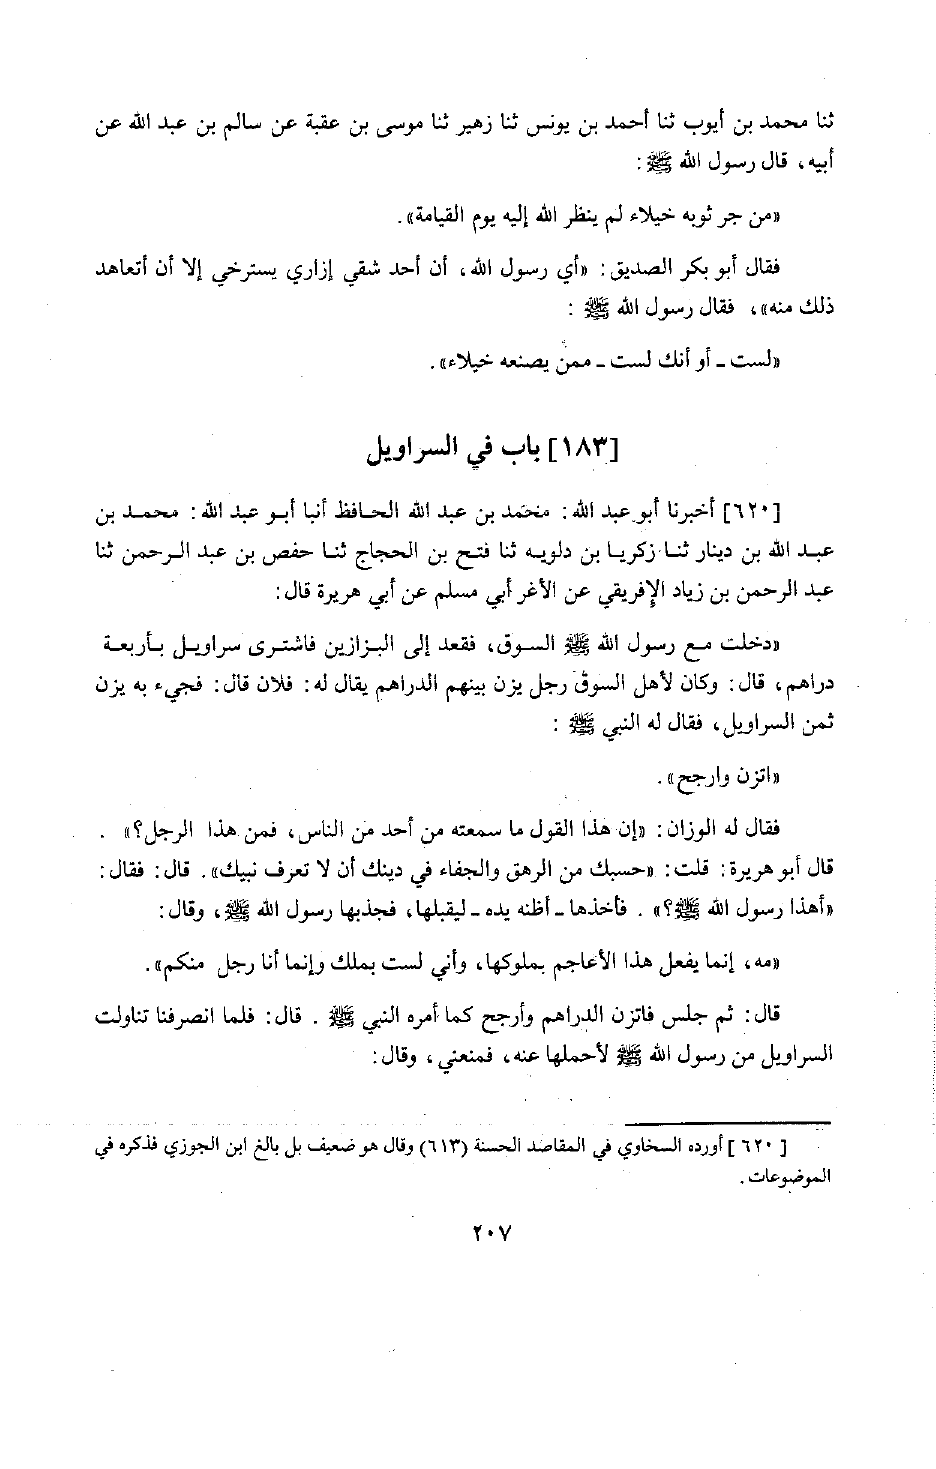 ثنا محمد بن أيوب ثنا أحمد بن يونس ثنا زهير ثنا موسى بن عقبة عن سالم بن عبد الله عن
أبيه، قال رسول الله ﷺ:
«من جر ثوبه خيلاء لم ينظر الله إليه يوم القيامة».
فقال أبو بكر الصديق: «أي رسول الله، أن أحد شقي إزاري يسترخي إلا أن أتعاهد
ذلك منه»، فقال رسول الله ﷺ :
«لست ـ أو أنك لست ـ ممن يصنعه خيلاء».
[١٨٣] باب في السراويل
[٦٢٠] أخبرنا أبو عبد الله: محمد بن عبد الله الحافظ أنبا أبو عبد الله: محمد بن
عبد الله بن دينار ثنا زكريا بن دلويه ثنا فتح بن الحجاج ثنا حفص بن عبد الرحمن ثنا
عبد الرحمن بن زياد الإفريقي عن الأغر أبي مسلم عن أبي هريرة قال:
«دخلت مع رسول الله ﷺ السوق، فقعد إلى البزازين فاشترى سراويل بأربعة
دراهم، قال: وكان لأهل السوق رجل يزن بينهم الدراهم يقال له: فلان قال: فجيء به يزن
ثمن السراويل، فقال له النبي ﷺ :
«اتزن وارجح».
فقال له الوزان: «إن هذا القول ما سمعته من أحد من الناس، فمن هذا الرجل؟» .
قال أبو هريرة: قلت: «حسبك من الرهق والجفاء في دينك أن لا تعرف نبيك». قال: فقال:
«أهذا رسول الله ﷺ؟» . فأخذها ـ أظنه يده ـ ليقبلها، فجذبها رسول الله ﷺ، وقال:
«مه، إنما يفعل هذا الأعاجم بملوكها، وأني لست بملك وإنما أنا رجل منكم».
قال: ثم جلس فاتزن الدراهم وأرجح كما أمره النبي ﷺ . قال: فلما انصرفنا تناولت
السراويل من رسول الله ﷺ لأحملها عنه، فمنعني، وقال:
[٦٢٠] أورده السخاوي في المقاصد الحسنة (٦١٣) وقال هو ضعيف بل بالغ ابن الجوزي فذكره في
الموضوعات.
٢٠٧